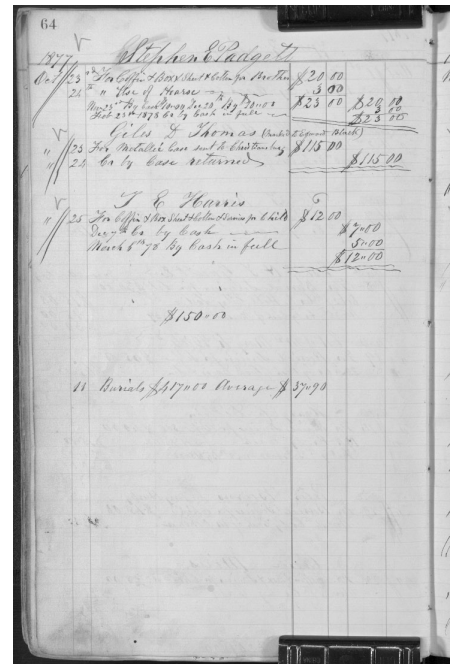 64
1877 Stephen E Padgett
Oct 23rd For Coffin & Box & Shirt & Collar for Brother $20 00
24th " Use of Hearse 3 00
Nov 23rd By Cash 10 00 Dec 20th By 10"00 $23 00 $20 00
Feb 23rd 1878 Cr by Cash in full 3 00
$23 00
Giles D Thomas
" 23 For Metallic Case sent to Christiansburg $115 00
" 24 Cr by Case returned $115 00
T E Harris
" 25 For Coffin & Box Shirt & Collar & for Child $12 00
Dec 7th Cr by Cash $7"00
March 6th 78 By Cash in full 5"00
$12"00
$150"00
11 Burials $417"00 Average $37"90